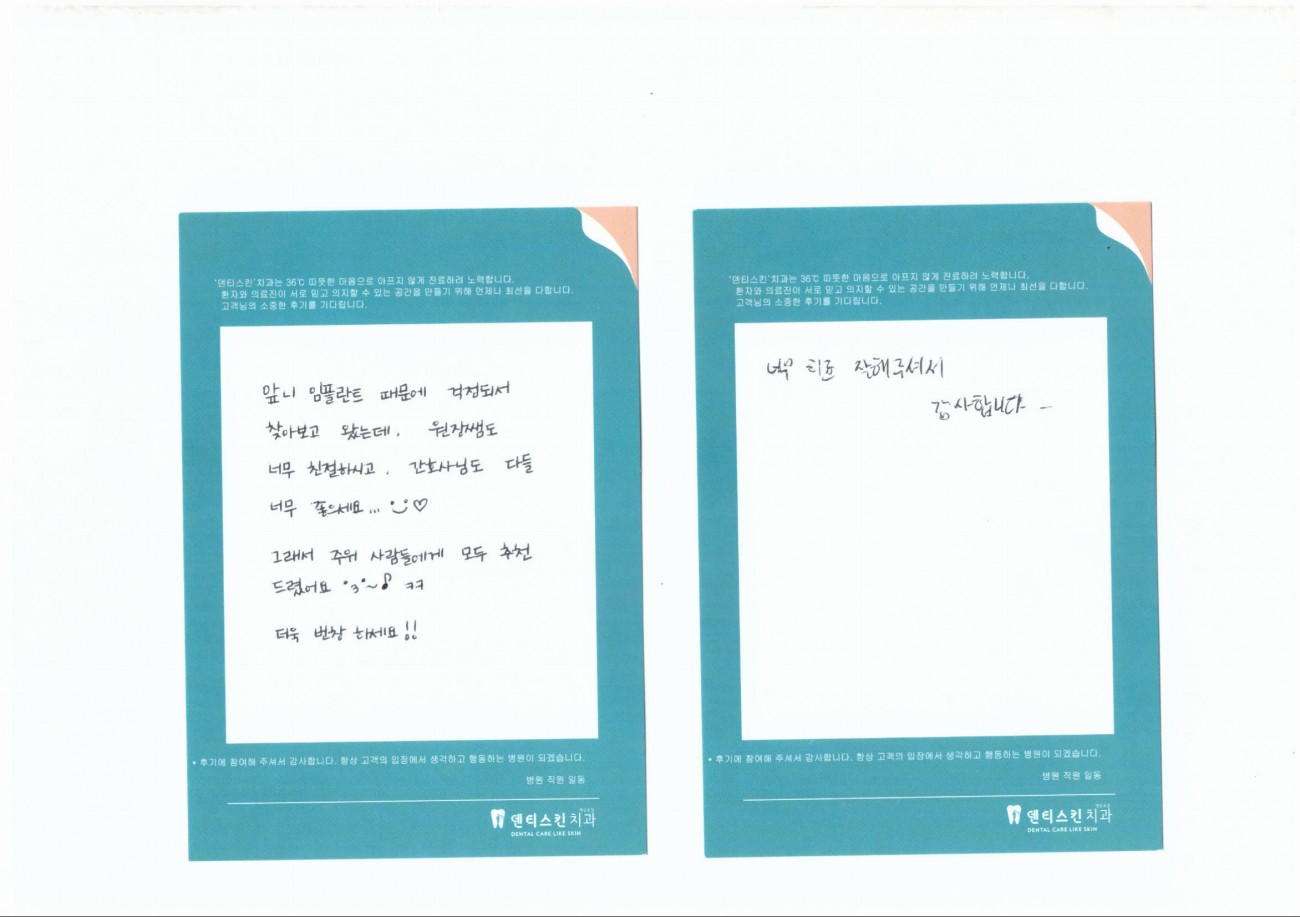 '덴티스킨'치과는 36℃ 따뜻한 마음으로 아프지 않게 진료하려 노력합니다.
환자와 의료진이 서로 믿고 의지할 수 있는 공간을 만들기 위해 언제나 최선을 다합니다.
고객님의 소중한 후기를 기다립니다.
앞니 임플란트 때문에 걱정되서
찾아보고 왔는데, 원장쌤도
너무 친절하시고, 간호사님도 다들
너무 좋으세요... ♡
그래서 주위 사람들에게 모두 추천
드렸어요 °3°~♪ ㅋㅋ
더욱 번창 하세요!!
• 후기에 참여해 주셔서 감사합니다. 항상 고객의 입장에서 생각하고 행동하는 병원이 되겠습니다.
병원 직원 일동
덴티스킨치과
DENTAL CARE LIKE SKIN
'덴티스킨'치과는 36℃ 따뜻한 마음으로 아프지 않게 진료하려 노력합니다.
환자와 의료진이 서로 믿고 의지할 수 있는 공간을 만들기 위해 언제나 최선을 다합니다.
고객님의 소중한 후기를 기다립니다.
너무 치료 잘해주셔서
감사합니다 -
• 후기에 참여해 주셔서 감사합니다. 항상 고객의 입장에서 생각하고 행동하는 병원이 되겠습니다.
병원 직원 일동
덴티스킨치과
DENTAL CARE LIKE SKIN